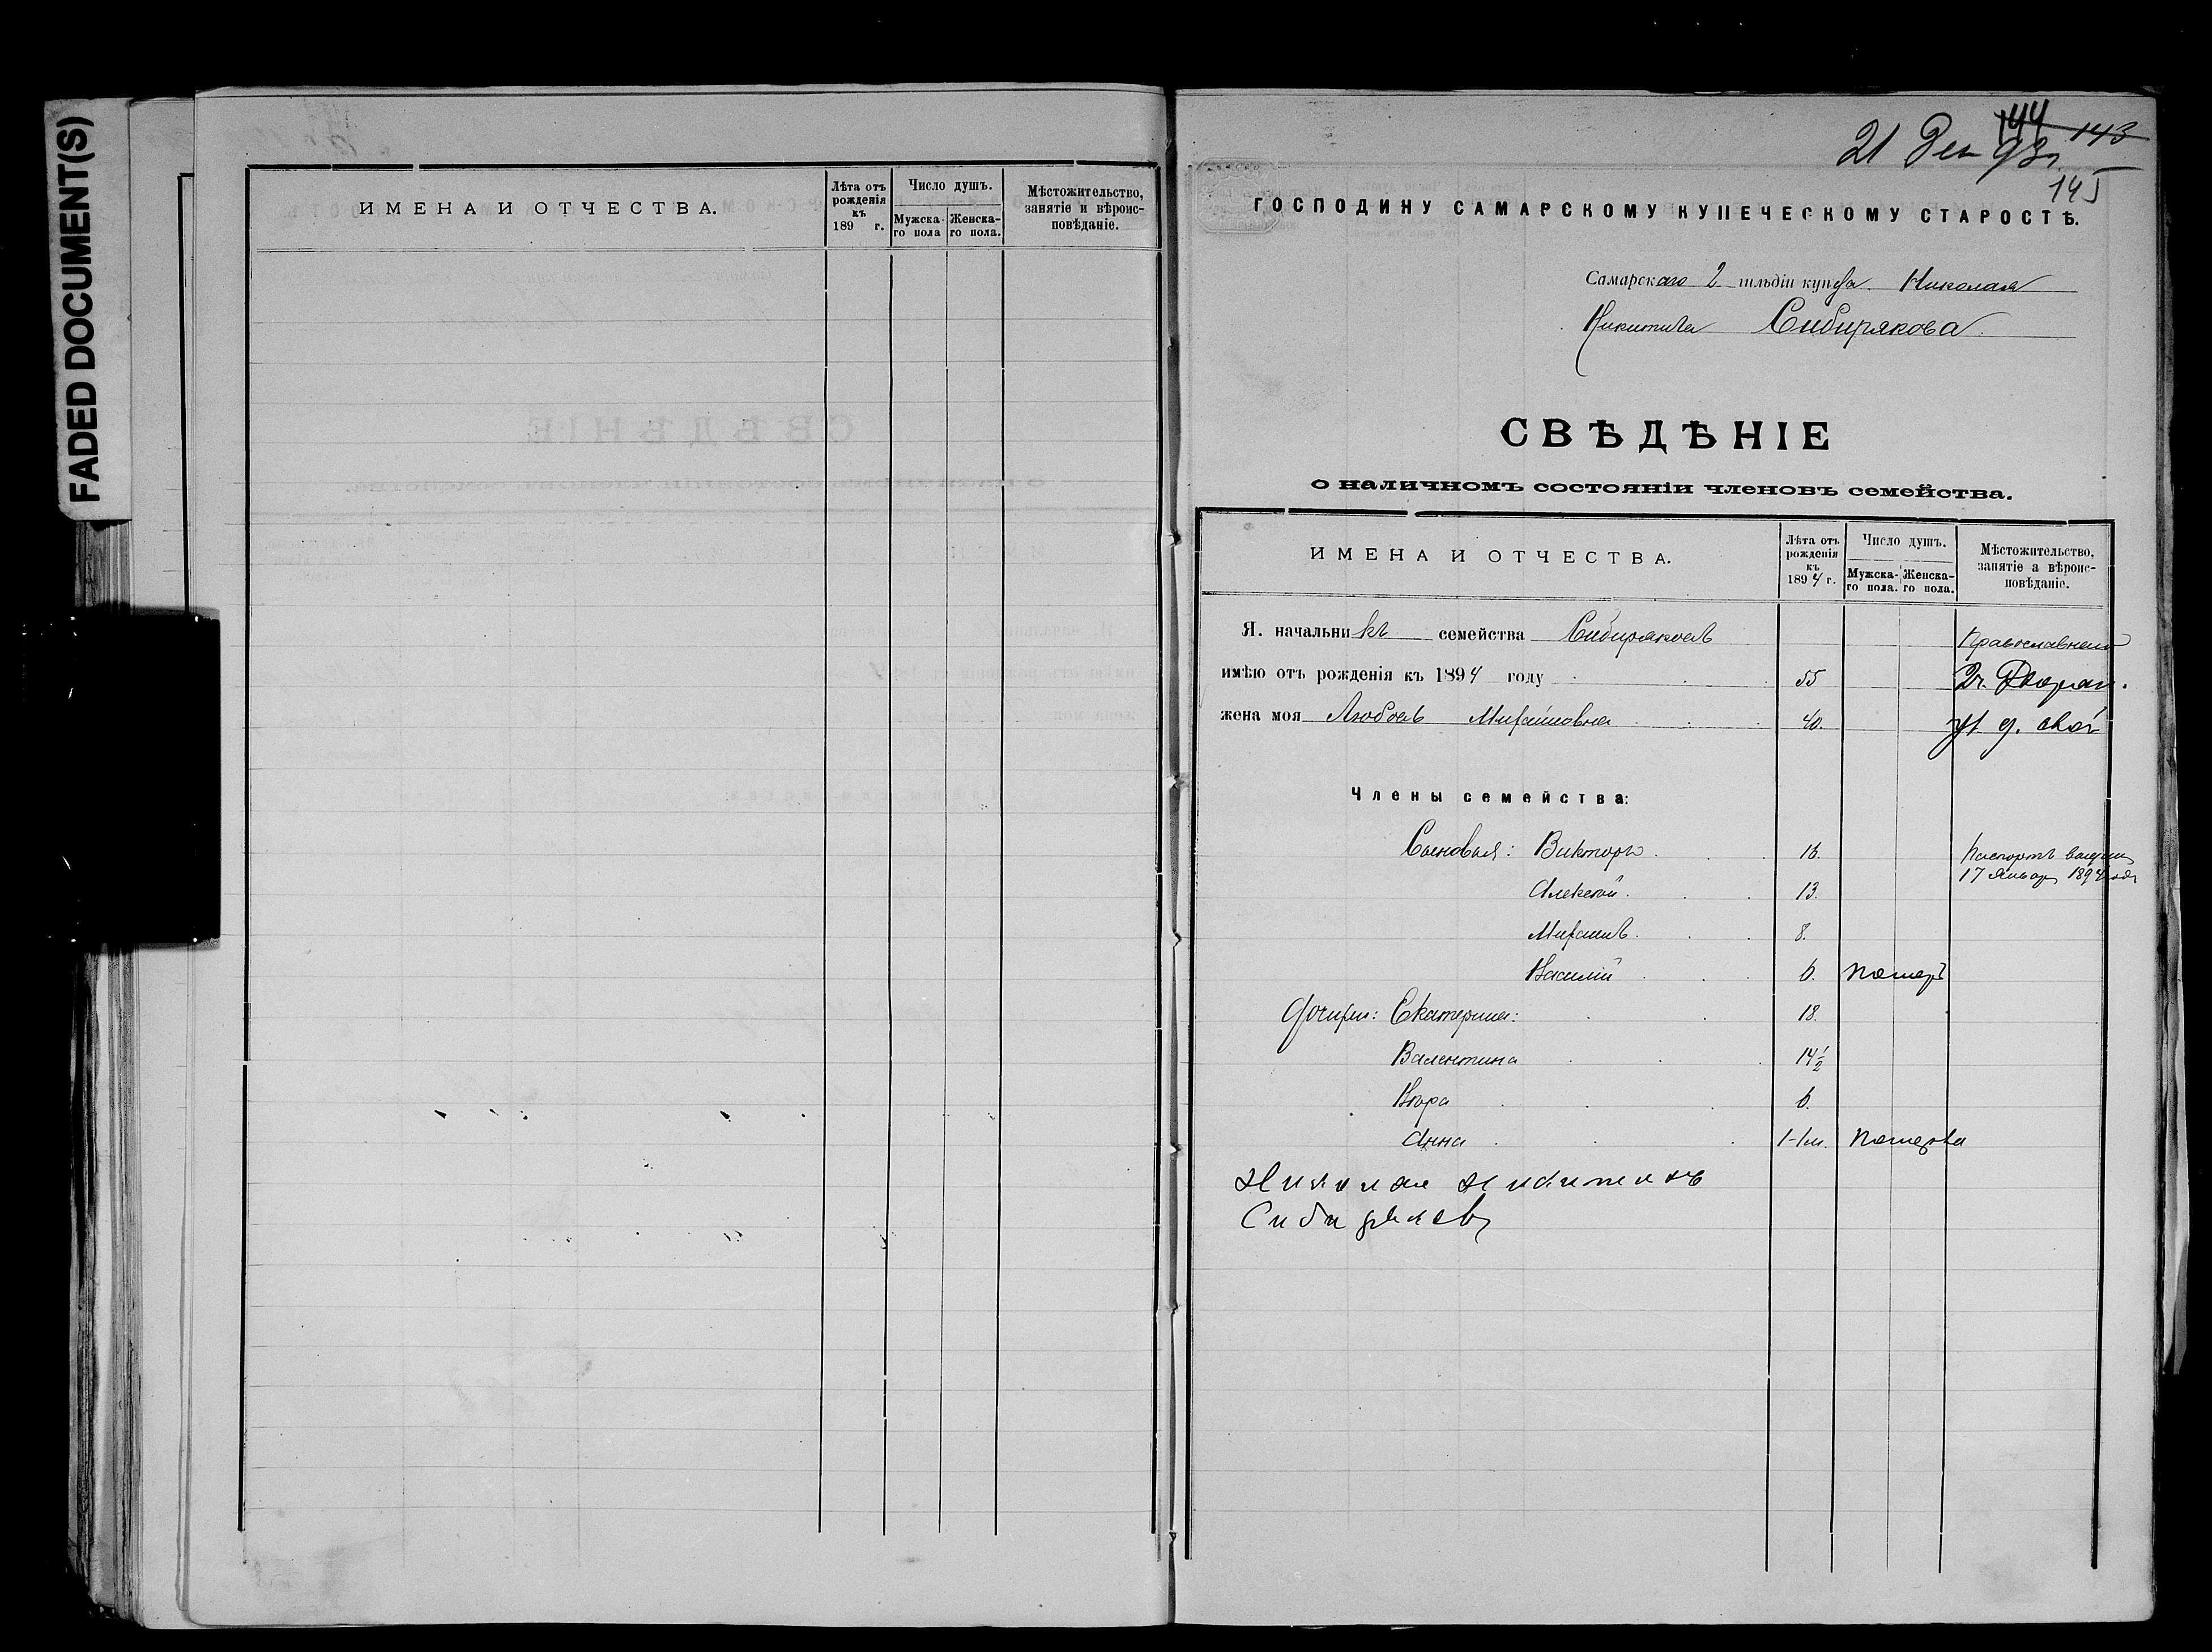 FADED DOCUMENT(S)
ИМЕНА И ОТЧЕСТВА.
Лѣта отъ рожденія къ 189 г.
Число душъ.
Мужска-го пола
Женска-го пола.
Мѣстожительство, занятіе и вѣроис-повѣданіе.
144
143
21 Дек 93 г.
145
ГОСПОДИНУ САМАРСКОМУ КУПЕЧЕСКОМУ СТАРОСТѢ.
Самарскаго 2 гильдіи купца Николая
Никитича Сибирякова
СВѢДѢНІЕ
о наличномъ состояніи членовъ семейства.
ИМЕНА И ОТЧЕСТВА.
Лѣта отъ рожденія къ 1894 г.
Число душъ.
Мужска-го пола.
Женска-го пола.
Мѣстожительство, занятіе а вѣроис-повѣданіе.
Я. начальникъ семейства Сибиряковъ Православный
имѣю отъ рожденія къ 1894 году 55 2 ч. Дворян.
жена моя Любовь 40. ул д. свой
Члены семейства:
Сыновья: Викторъ 16. Паспортъ выданъ
17 Января 1894 года
Алексѣй. 13.
8.
Василій 6. померъ
Дочери: Екатерина: 18.
Валентина 14 1/2
6.
Анна 1-1м. померла
Николая Никитичъ
Сибиряковъ